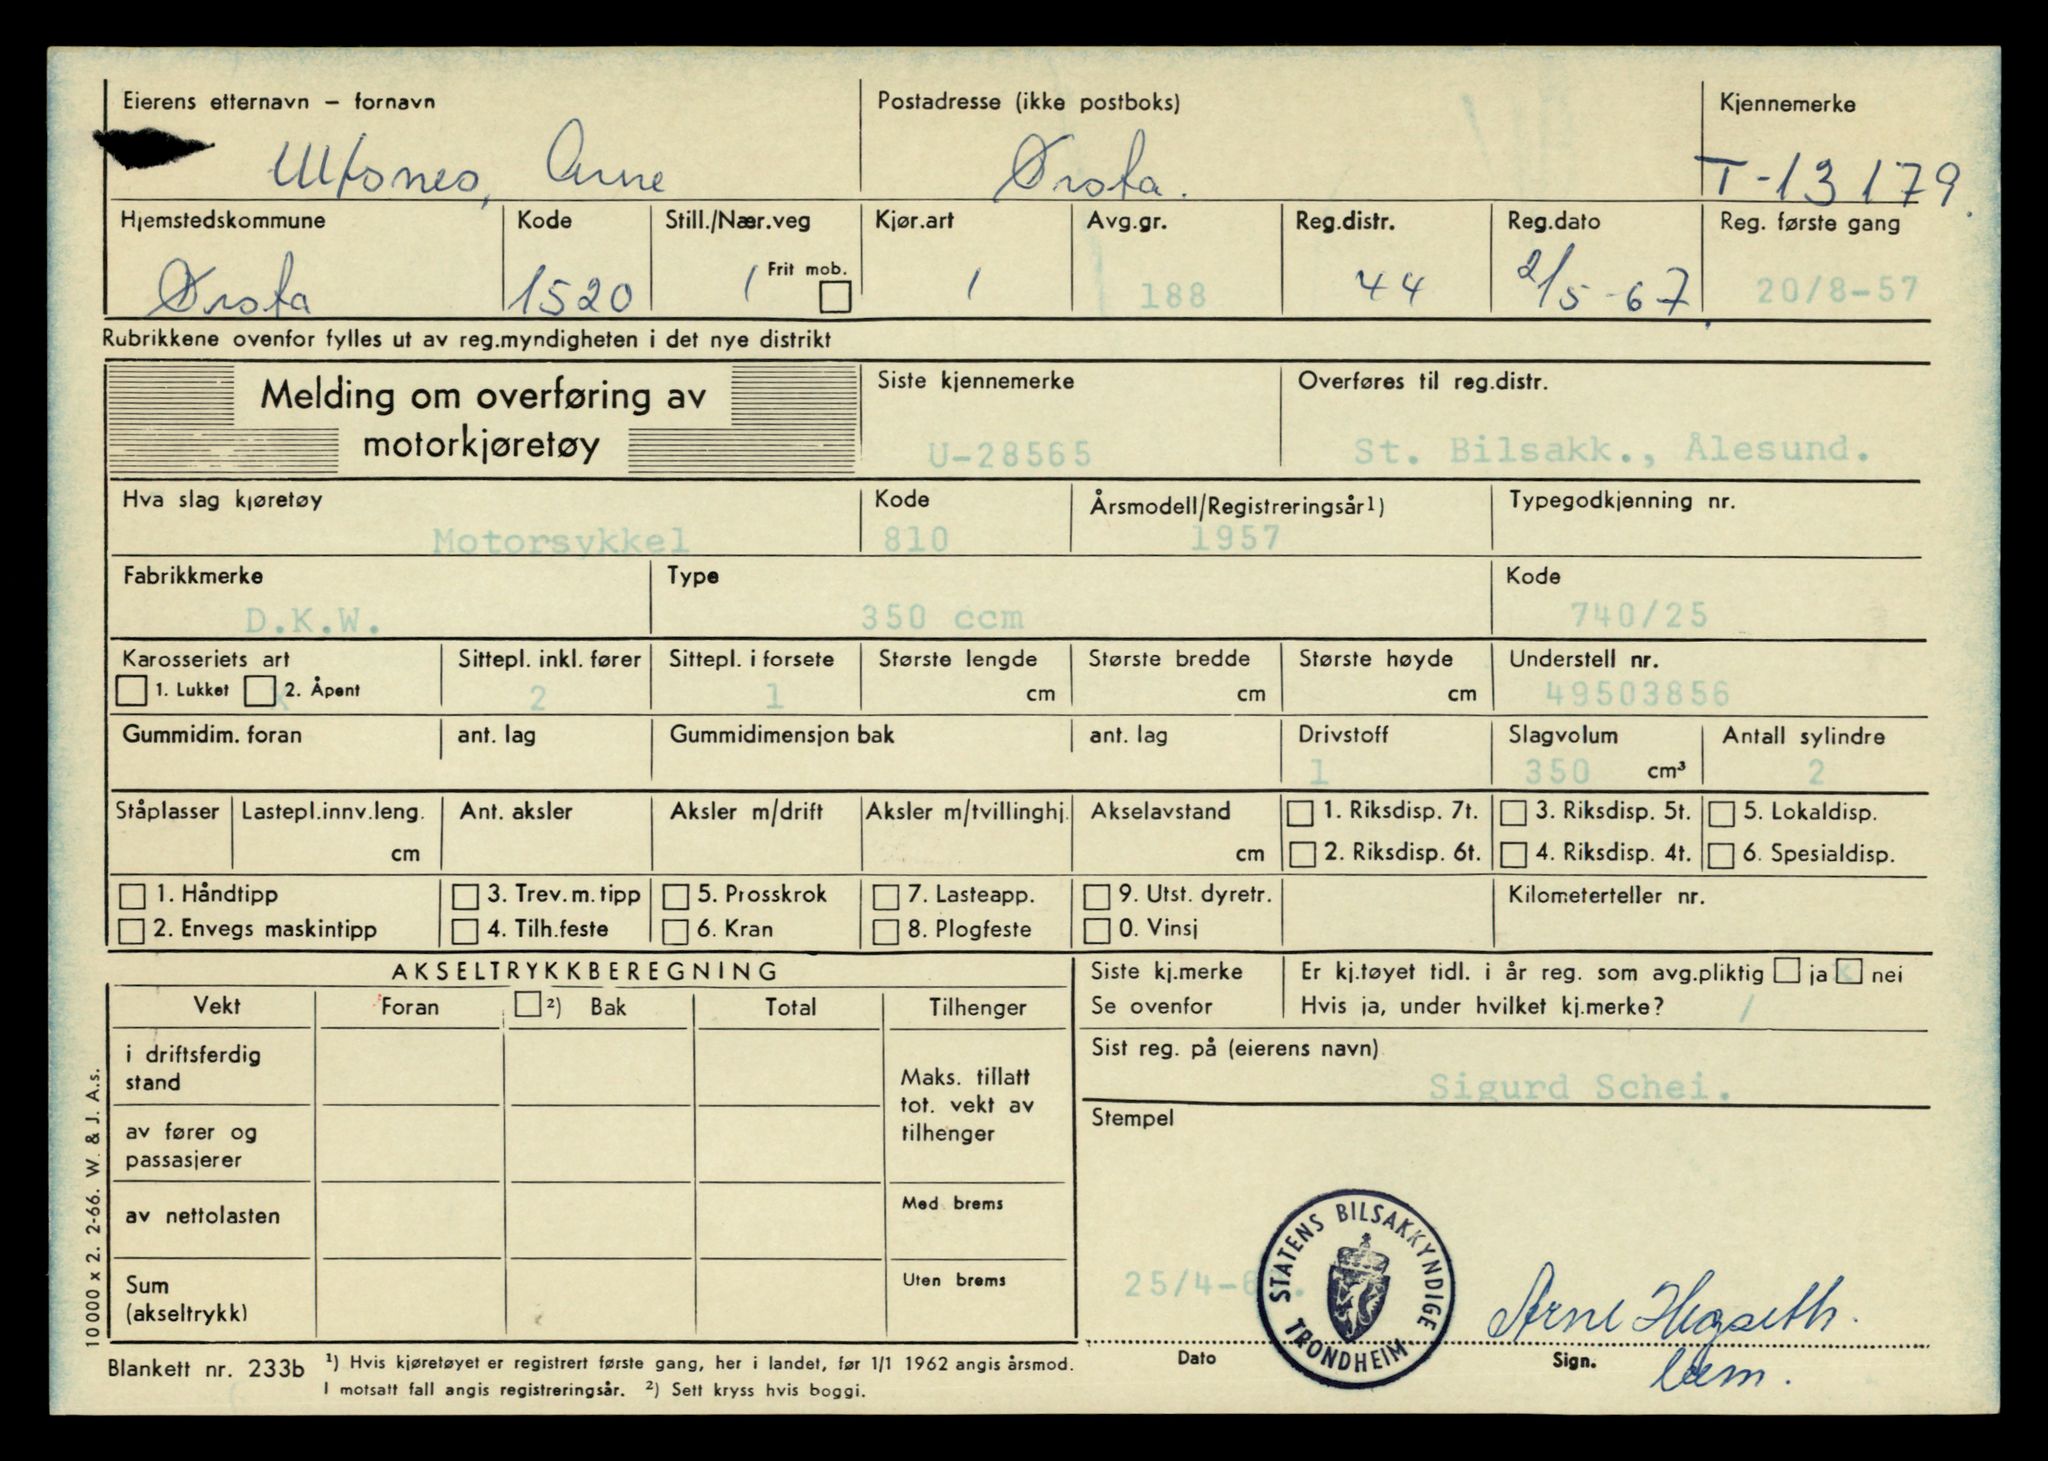 Eierens etternavn – fornavn
Postadresse (ikke postboks)
Kjennemerke
Arne
Ørsta.
T-13179.
Hjemstedskommune
Kode
Still./Nær.veg
Kjør.art
Avg.gr.
Reg.distr.
Reg.dato
Reg. første gang
Ørsta
1520
1
Frit mob.
1
188
44
2/5-67
20/8-57
Rubrikkene ovenfor fylles ut av reg.myndigheten i det nye distrikt
Melding om overføring av
motorkjøretøy
Siste kjennemerke
Overføres til reg.distr.
U-28565
St. Bilsakk., Ålesund.
Hva slag kjøretøy
Kode
Årsmodell/Registreringsår1)
Typegodkjenning nr.
Motorsykkel
810
1957
Fabrikkmerke
Type
Kode
D.K.W.
350 ccm
740/25
Karosseriets art
Sittepl. inkl. fører
Sittepl. i forsete
Største lengde
Største bredde
Største høyde
Understell nr.
1. Lukket
2. Åpent
2
1
cm
cm
cm
49503856
Gummidim. foran
ant. lag
Gummidimensjon bak
ant. lag
Drivstoff
Slagvolum
Antall sylindre
1
350 cm³
2
Ståplasser
Lastepl.innv.leng.
Ant. aksler
Aksler m/drift
Aksler m/tvillinghj.
Akselavstand
1. Riksdisp. 7t.
3. Riksdisp. 5t.
5. Lokaldisp.
cm
cm
2. Riksdisp. 6t.
4. Riksdisp. 4t.
6. Spesialdisp.
1. Håndtipp
3. Trev. m. tipp
5. Prosskrok
7. Lasteapp.
9. Utst. dyretr.
Kilometerteller nr.
2. Envegs maskintipp
4. Tilh.feste
6. Kran
8. Plogfeste
0. Vinsj
AKSELTRYKKBEREGNING
Siste kj.merke
Er kj.tøyet tidl. i år reg. som avg.pliktig
ja
nei
Vekt
Foran
2) Bak
Total
Tilhenger
Se ovenfor
Hvis ja, under hvilket kj.merke? /
i driftsferdig
stand
Maks. tillatt
tot. vekt av
tilhenger
Sist reg. på (eierens navn)
Sigurd Schei.
av fører og
passasjerer
Stempel
av nettolasten
Med brems
Sum
(akseltrykk)
Uten brems
25/4-6
STATENS BILSAKKYNDIGE
TRONDHEIM
Arne
Dato
Sign.
Blankett nr. 233b
1) Hvis kjøretøyet er registrert første gang, her i landet, før 1/1 1962 angis årsmod.
I motsatt fall angis registreringsår. 2) Sett kryss hvis boggi.
10000 x 2. 2-66. W. & J. A.s.